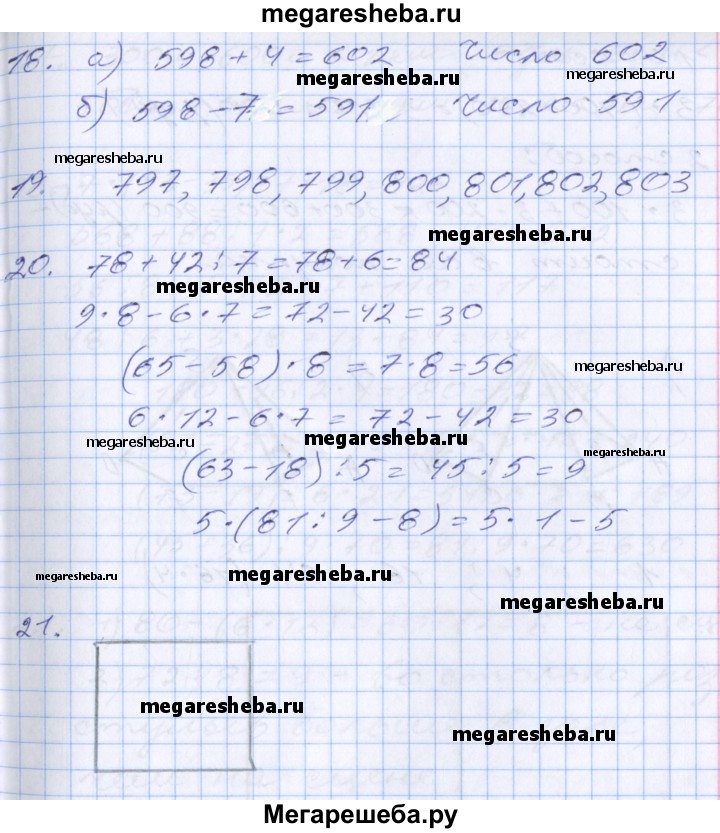 megaresheba.ru
18. а) 598 + 4 = 602 Число 602
megaresheba.ru megaresheba.ru
б) 598 - 7 = 591 Число 591
megaresheba.ru
19. 797, 798, 799, 800, 801, 802, 803
megaresheba.ru
20. 78 + 42 : 7 = 78 + 6 = 84
megaresheba.ru
9 · 8 - 6 · 7 = 72 - 42 = 30
(65 - 58) · 8 = 7 · 8 = 56
megaresheba.ru
6 · 12 - 6 · 7 = 72 - 42 = 30
megaresheba.ru megaresheba.ru megaresheba.ru
(63 - 18) : 5 = 45 : 5 = 9
5 · (81 : 9 - 8) = 5 · 1 - 5
megaresheba.ru megaresheba.ru
megaresheba.ru
21.
megaresheba.ru
megaresheba.ru
Мегарешеба.ру